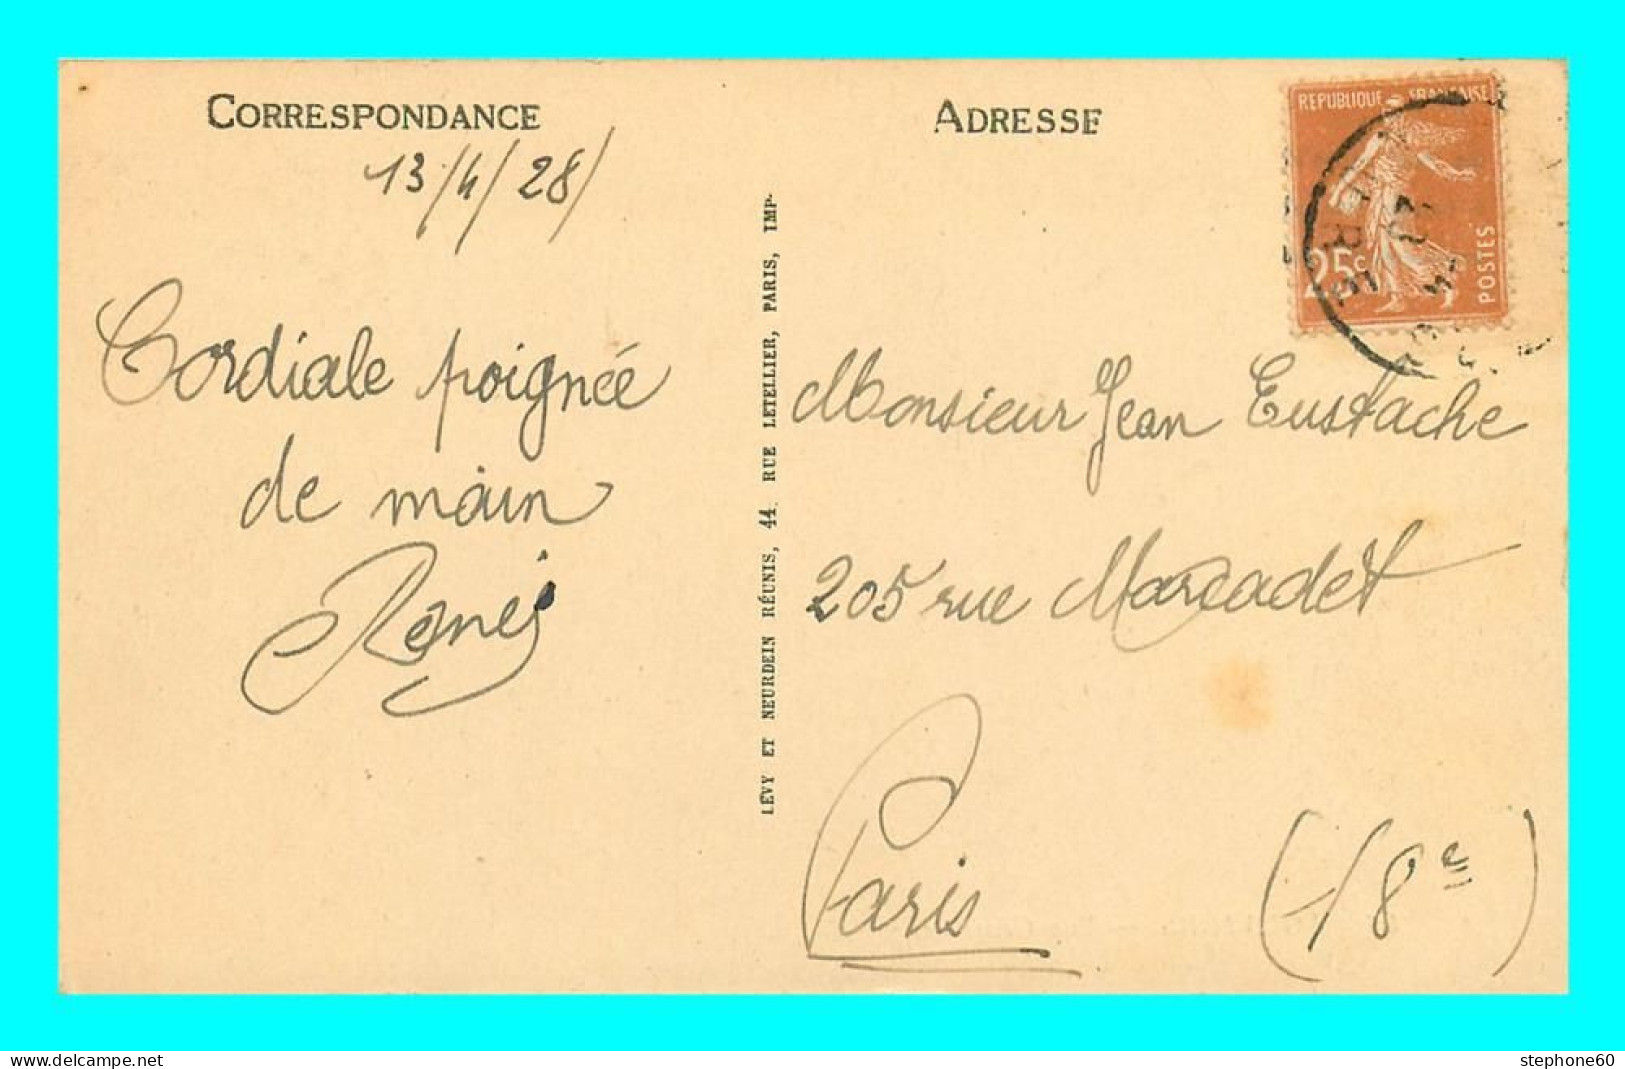 CORRESPONDANCE
13/4/28/
Cordiale poignée
de main
René
LÉVY ET NEURDEIN RÉUNIS, 44, RUE LETELLIER, PARIS, IMP.
ADRESSE
REPUBLIQUE FRANÇAISE
25c
POSTES
Monsieur Jean Eustache
205 rue Marcadet
Paris
(18e)
stephone60